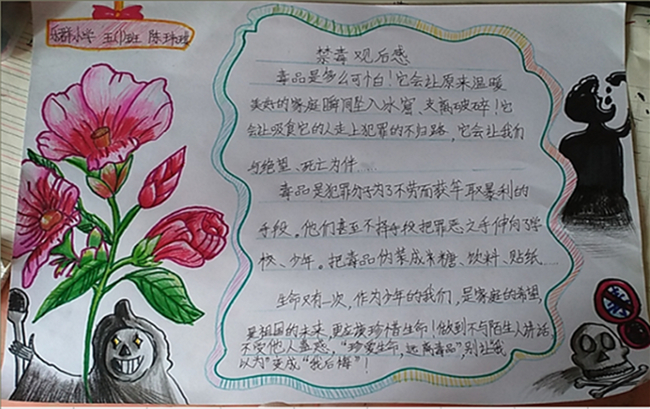 乐群小学 五(1)班 陈珠
禁毒观后感
毒品是多么可怕!它会让原来温暖
美好的家庭瞬间坠入冰窖、支离破碎!它
会让吸食它的人走上犯罪的不归路,它会让我们
与绝望、死亡为伴……
毒品是犯罪分子为了不劳而获牟取暴利的
手段。他们甚至不择手段把罪恶之手伸向了学
校、少年。把毒品伪装成糖、饮料、贴纸……
生命只有一次,作为少年的我们,是家庭的希望,
是祖国的未来,更应该珍惜生命!做到不与陌生人讲话,
不受他人蛊惑,“珍爱生命,远离毒品”,别让我
以为”变成“我后悔”!